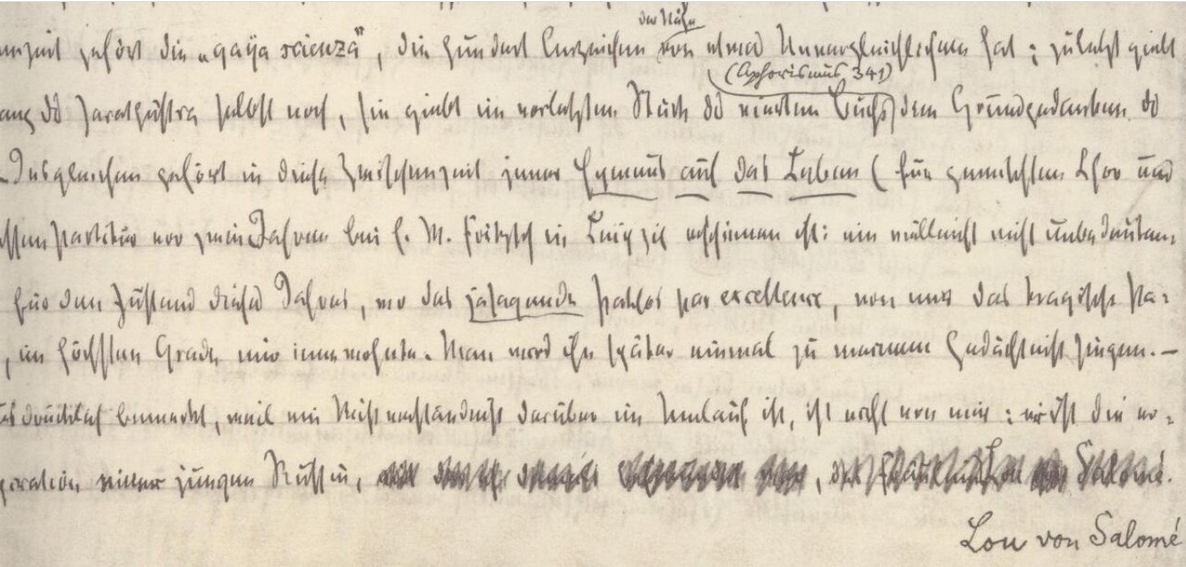 der Nähe
gehört die „gaya scienza“, die hundert Anzeichen von etwas Unvergleichlichem hat; zuletzt giebt
(Aphorismus 341)
des Zarathustra selbst noch, sie giebt im vorletzten Stück des vierten Buchs den Grundgedanken des
Insgleichen gehört in diese Zwischenzeit jener Hymnus auf das Leben (für gemischten Chor und
Partitur vor zwei Jahren bei E. W. Fritzsch in Leipzig erschienen ist: ein vielleicht nicht unbedeuten-
für den Zustand dieses Jahres, wo das jasagende Pathos par excellence, von mir das tragische Pa-
, im höchsten Grade mir innewohnte. Man wird ihn später einmal zu meinem Gedächtniß singen. —
bemerkt, weil ein Mißverständniß darüber im Umlauf ist, ist nicht von mir: er ist die er-
einer jungen Russin, , Salomé.
Lou von Salomé